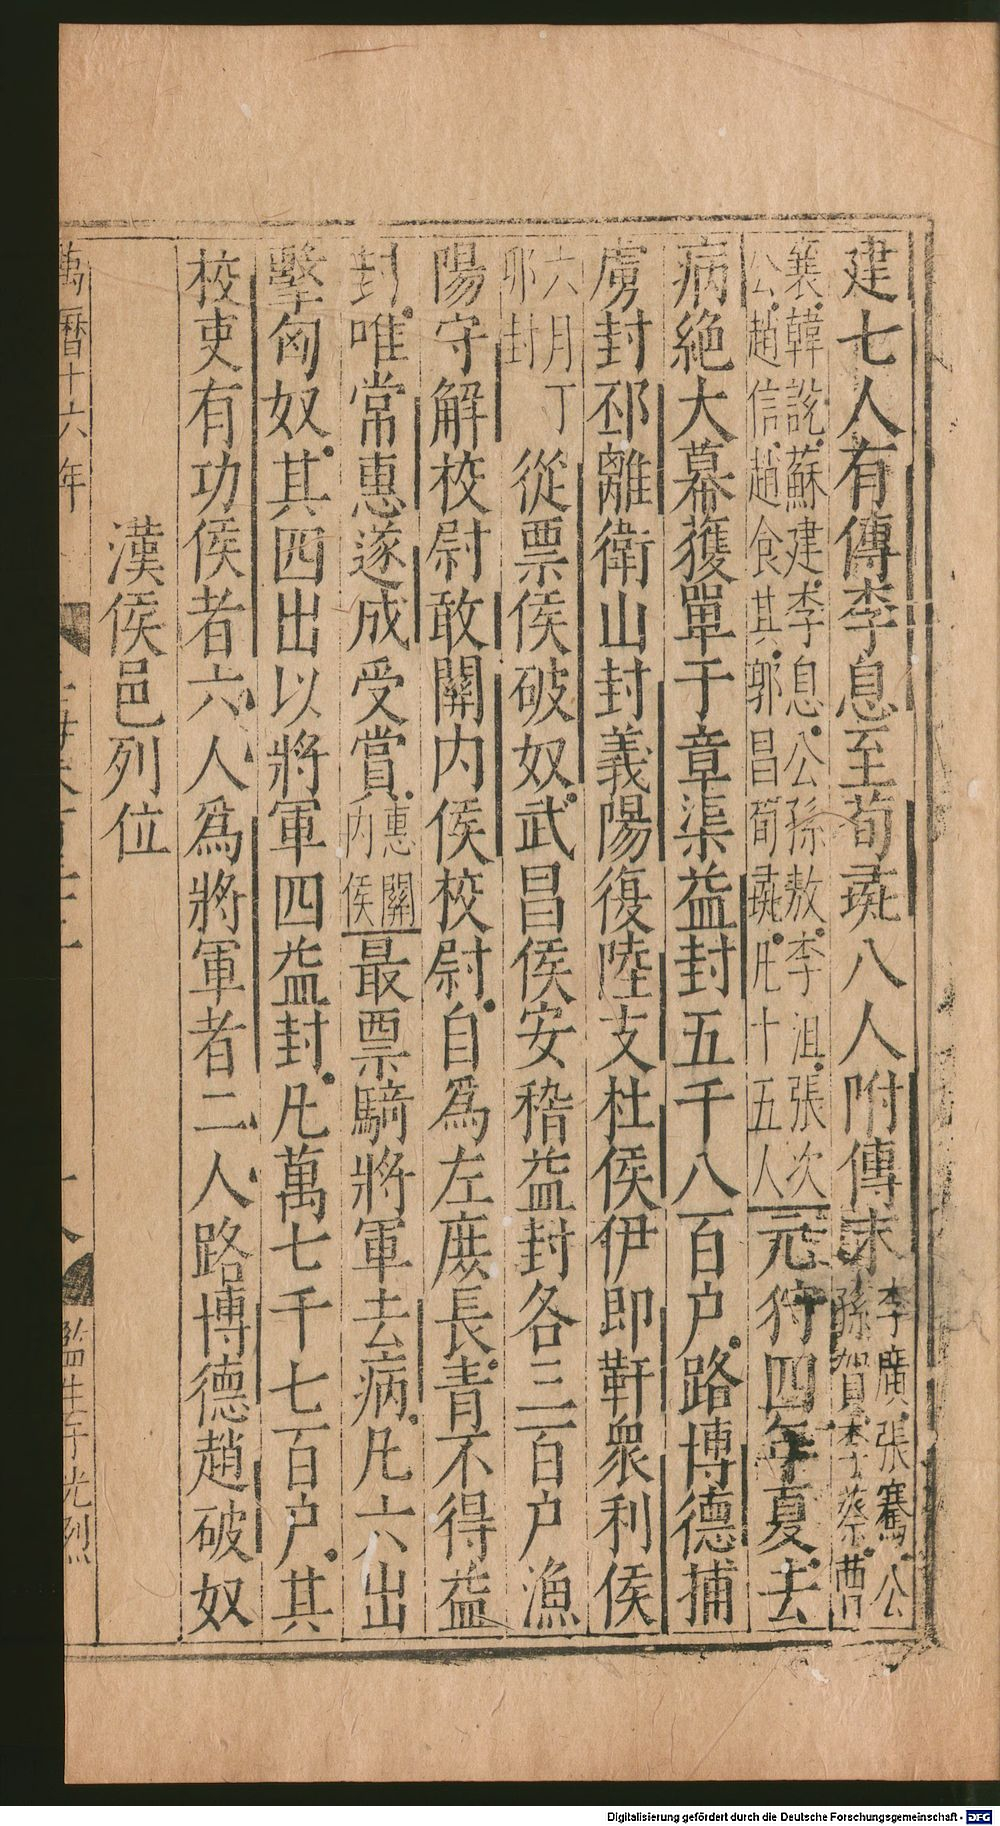 建七人有傳李息至荀彘八人附傳末李廣張騫公孫賀李蔡曹
襄韓說蘇建李息公孫敖李沮張次公趙信趙食其郭昌荀彘凡十五人元狩四年夏去
病絕大幕獲單于章渠益封五千八百户路博德捕
虜封邳離衛山封義陽復陸支杜侯伊即靬衆利侯
六月丁邜封從票侯破奴武昌侯安稽益封各三百户漁
陽守解校尉敢關内侯校尉自爲左庶長青不得益
封唯常惠遂成受賞惠關内侯最票騎將軍去病凡六出
擊匈奴其四出以將軍四益封凡萬七千七百户其
校吏有功侯者六人爲將軍者二人路博德趙破奴
漢侯邑列位
萬曆十六年
十八
監生 光烈
Digitalisierung gefördert durch die Deutsche Forschungsgemeinschaft - DFG